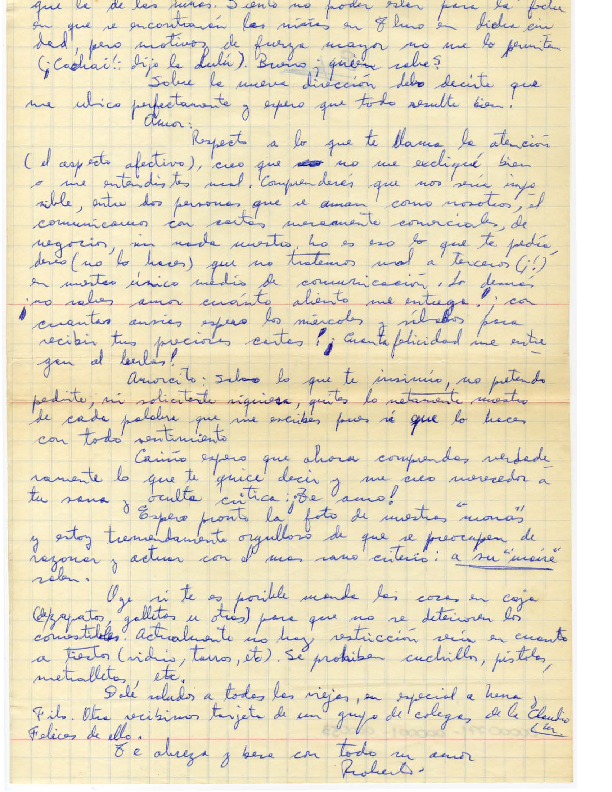 que la de las niñas. Siento no poder estar para la fecha
en que se encontrarán las niñas en 8 luno en dicha ciu
dad, pero motivos de fuerza mayor no me lo permiten
(¡Cachai!: dijo la Lulú). Bueno ¿quién sabe?
Sobre la nueva dirección debo decirte que
me ubico perfectamente y espero que todo resulte bien!
Amor:
Respecto a lo que te llama la atención
(el aspecto afectivo), creo que no me expliqué bien
o me entendistes mal. Comprenderás que nos sería impo
sible, entre dos personas que se aman como nosotros, el
comunicarnos con cartas meramente comerciales, de
negocios, sin nada nuestro, no es eso lo que te pedía,
decía (no lo haces) que no tratemos mal a terceros (¡!)
en nuestro único medio de comunicación. Lo demás
¡no sabes amor cuánto aliento me entrega! ¡con
cuantas ansias espero los miércoles y sábados para
recibir tus preciosas cartas! ¡Cuanta felicidad me entre
gan al leerlas!
Amorcito: Sabes lo que te insinúo, no pretendo
pedirte, ni solicitarte siquiera, quites lo netamente nuestro
de cada palabra que me escribes pues sé que lo haces
con todo sentimiento
Cariño espero que ahora comprendas verdade
ramente lo que te quise decir y me creo merecedor a
tu sana y oculta crítica: ¡Te amo!
Espero pronto la foto de nuestras "monas"
y estoy tremendamente orgulloso de que se preocupen de
razonar y actuar con el mas sano criterio: a su "maire"
salen.
Oye si te es posible manda las cosas en caja
(de zapatos, galletas u otras) para que no se deterioren los
comestibles. Actualmente no hay restricción seria en cuanto
a tiestos (vidrio, tarros, etc). Se prohiben cuchillos, pistolas,
metralletas, etc.
Dale saludos a todas las viejas, en especial a Nena y
Filo. Otra recibimos tarjeta de un grupo de colegas de la Claudio
Felices de ello.
Te abraza y besa con todo su amor
Roberto.